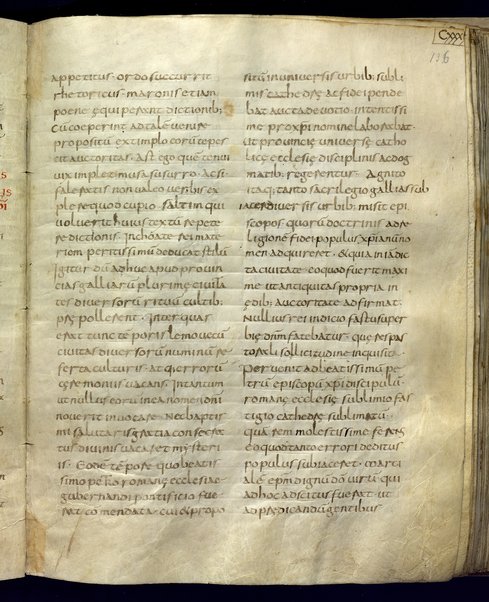 CXXX
136
appetitus · ordo succurrit
rhetoricus · maronis etiam
poene aequiperent dictionib;
Cū coeperint ad talē venire
propositū extimplo corū tepes
cit auctoritas · ast ego quē tenui
vix implet musa susurro · ac si
fale fretis non valeo verbis ex
plere quod cupio · saltim qui
voluerit huius textū repete
re dictionis · Inchoare si mate
riem pertissimū deducat stilū
Igitur dū adhuc apud provin
cias galliarū plurime civita
ter diversorū rituū cultib;
pręs pollerent · Inter quas
erat tunc tēporis lemovecū
civitas diversorū numinū re
ferta culturis · atq; errorū
ceremoniis vacans · Intantum
ut nullus eorū incarnem dni
noverit invocare · Nec baptis
mi salutaris gratia consecra
tus divinis vacaret mysteri
is · Eodē tēpore quo beatis
simo petro romane ecclesiae
gubernandi pontificio fue
rat comendata · cui & propo
sitū in universis urbib; subli
mis cathedre ac fidei pende
bat aucta devotio · intentissi
me pro xpi nomine laborabat ·
ut provincie universe catho
lice ecclesie disciplinis ac dog
matib; regerentur · Agnito
itaq; tanto sacrilegio gallias sub
iacere diversis urbib; misit epi
scopos quorū doctrinis ad re
ligionē fidei populus xpiani no
men adquireret · & quia in iā dic
ta civitate eo quo fuerit maxi
me ut antiquitas propria in
edib; auctoritate adfirmat ·
Nullius rei indicio fastu super
bie dnm fatebatur · que res pas
toreali sollicitudine inquisita ·
Pervenit ad beatissimū pe
trū episcopū xpi discipulū ·
romane ecclesie sublimio fas
tigio cathedre sublimatū ·
quā rem molestissime fereis
eo quod tanto errori deditus
populus subiaceret · marti
alē epm dignū dō virū qui
ad hoc adscitus fuerat · ut
ad praedicandū gentibus